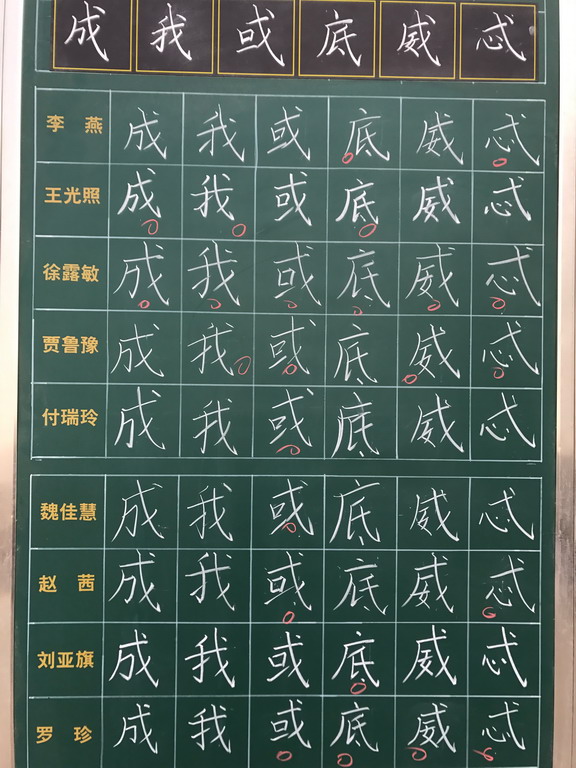 成 我 或 底 威 忒
李 燕 成 我 或 底 威 忒
王光照 成 我 或 底 威 忒
徐露敏 成 我 或 底 威 忒
贾鲁豫 成 我 或 底 威 忒
付瑞玲 成 我 或 底 威 忒
魏佳慧 成 我 或 底 威 忒
赵 茜 成 我 或 底 威 忒
刘亚旗 成 我 或 底 威 忒
罗 珍 成 我 或 底 威 忒